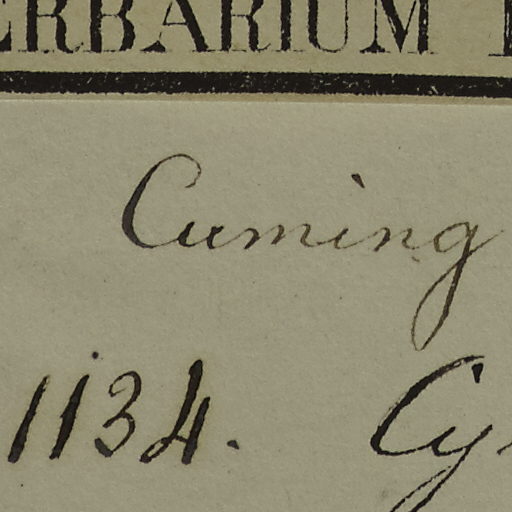 ERBARIUM
Cuming
1134. Cy